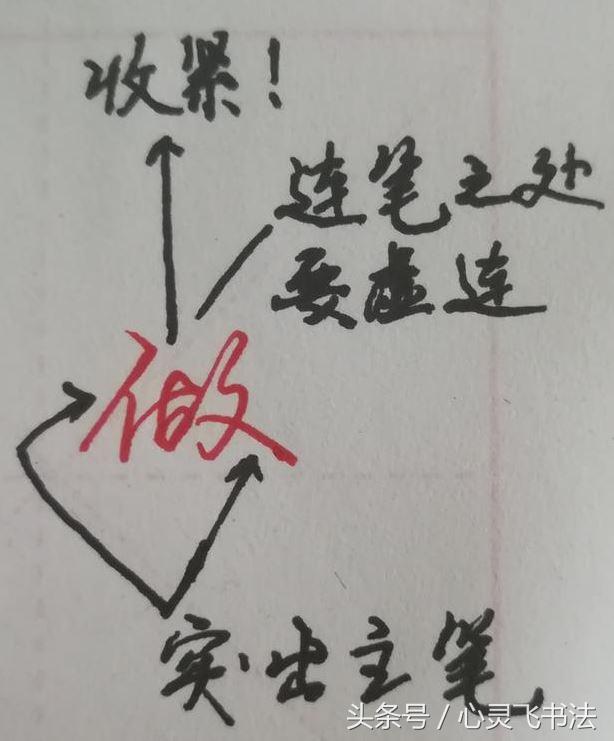 收紧！
连笔之处
要虚连
做
突出主笔
头条号／心灵飞书法